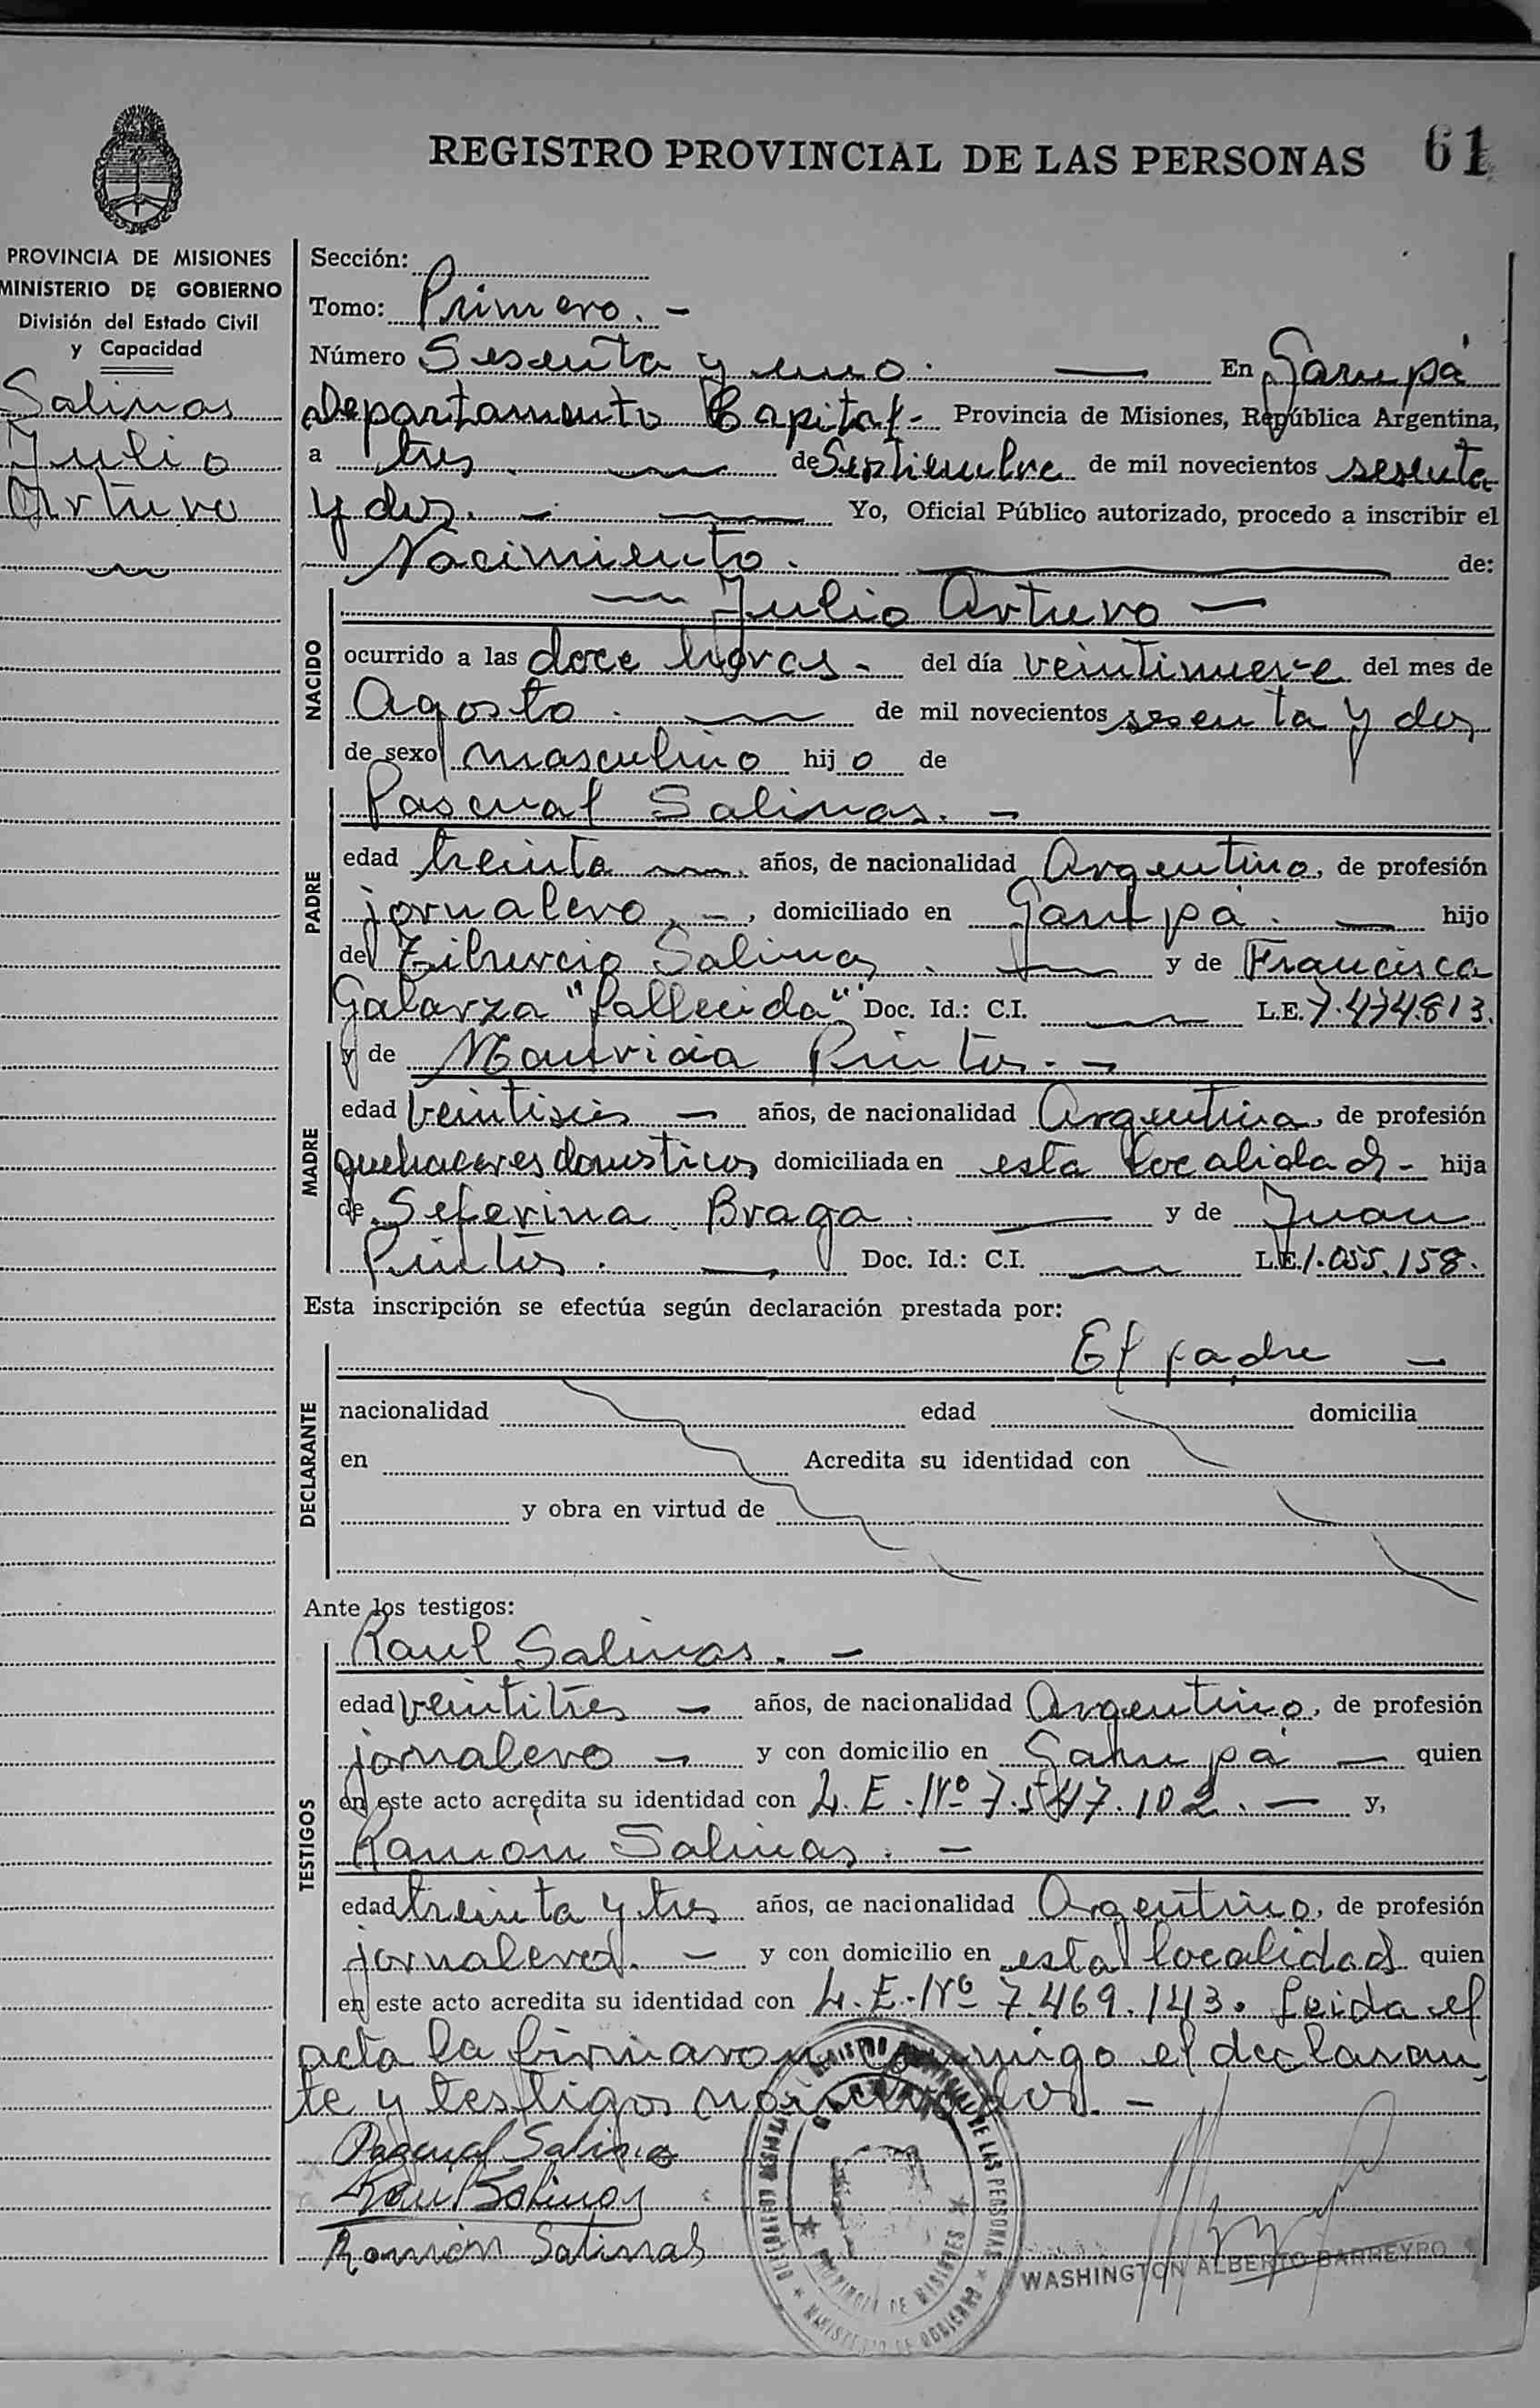 REGISTRO PROVINCIAL DE LAS PERSONAS 61
PROVINCIA DE MISIONES
MINISTERIO DE GOBIERNO
División del Estado Civil
y Capacidad
Salinas
Julio
Arturo
Sección:
Tomo: Primero. -
Número Sesenta y uno. — En Garupá
Departamento Capital - Provincia de Misiones, República Argentina,
a tres. — de Septiembre de mil novecientos sesenta
y dos. - — Yo, Oficial Público autorizado, procedo a inscribir el
Nacimiento. — de:
NACIDO
— Julio Arturo —
ocurrido a las doce horas - del día veintinueve del mes de
Agosto. — de mil novecientos sesenta y dos
de sexo masculino hijo de
PADRE
Pascual Salinas. -
edad treinta — años, de nacionalidad Argentino, de profesión
jornalero, -, domiciliado en Garupá. — hijo
de Tiburcio Salinas. — y de Francisca
Galarza "fallecida" Doc. Id.: C.I. — L.E. 7.474.813.
MADRE
y de Mauricia Pintos. -
edad veintiseis - años, de nacionalidad Argentina, de profesión
quehaceres domesticos domiciliada en esta localidad - hija
de Seferina Braga. — y de Juan
Pintos. — Doc. Id.: C.I. — L.E. 1.055.158.
Esta inscripción se efectúa según declaración prestada por:
DECLARANTE
El padre —
nacionalidad edad domicilia
en Acredita su identidad con
y obra en virtud de
Ante los testigos:
TESTIGOS
Raul Salinas. -
edad veintitres - años, de nacionalidad Argentino, de profesión
jornalero - y con domicilio en Garupá — quien
en este acto acredita su identidad con L.E. Nº 7.547.102. — y,
Ramón Salinas. -
edad treinta y tres años, de nacionalidad Argentino, de profesión
jornalero. - y con domicilio en esta localidad quien
en este acto acredita su identidad con L.E. Nº 7.469.143. Leida el
acta la firmaron conmigo el declaran
te y testigos nombrados. -
Pascual Salinas
Raul Salinas
Ramón Salinas
WASHINGTON ALBERTO BARREYRO
REGISTRO PROVINCIAL DE LAS PERSONAS
PROVINCIA DE MISIONES
MINISTERIO DE GOBIERNO